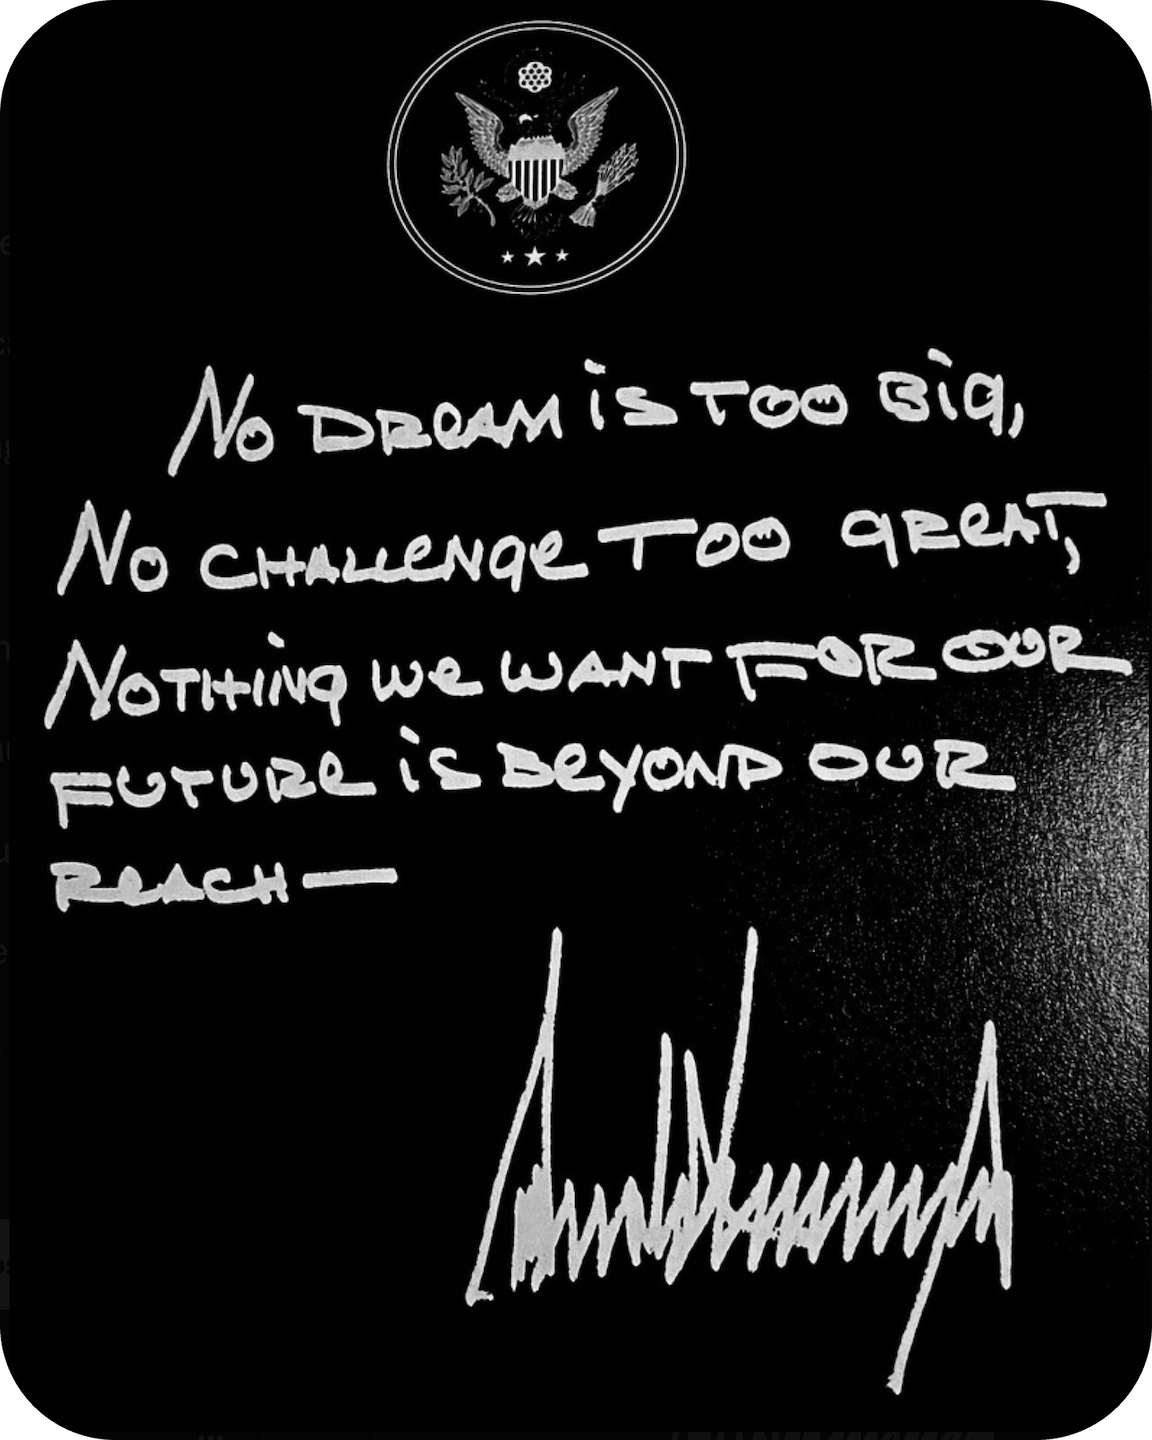 No DReAM is Too Big,
No CHALLeNge Too gReAT,
NoTHiNg we wANT FOR OUR
FUTURe is BeYOND OUR
ReACH—